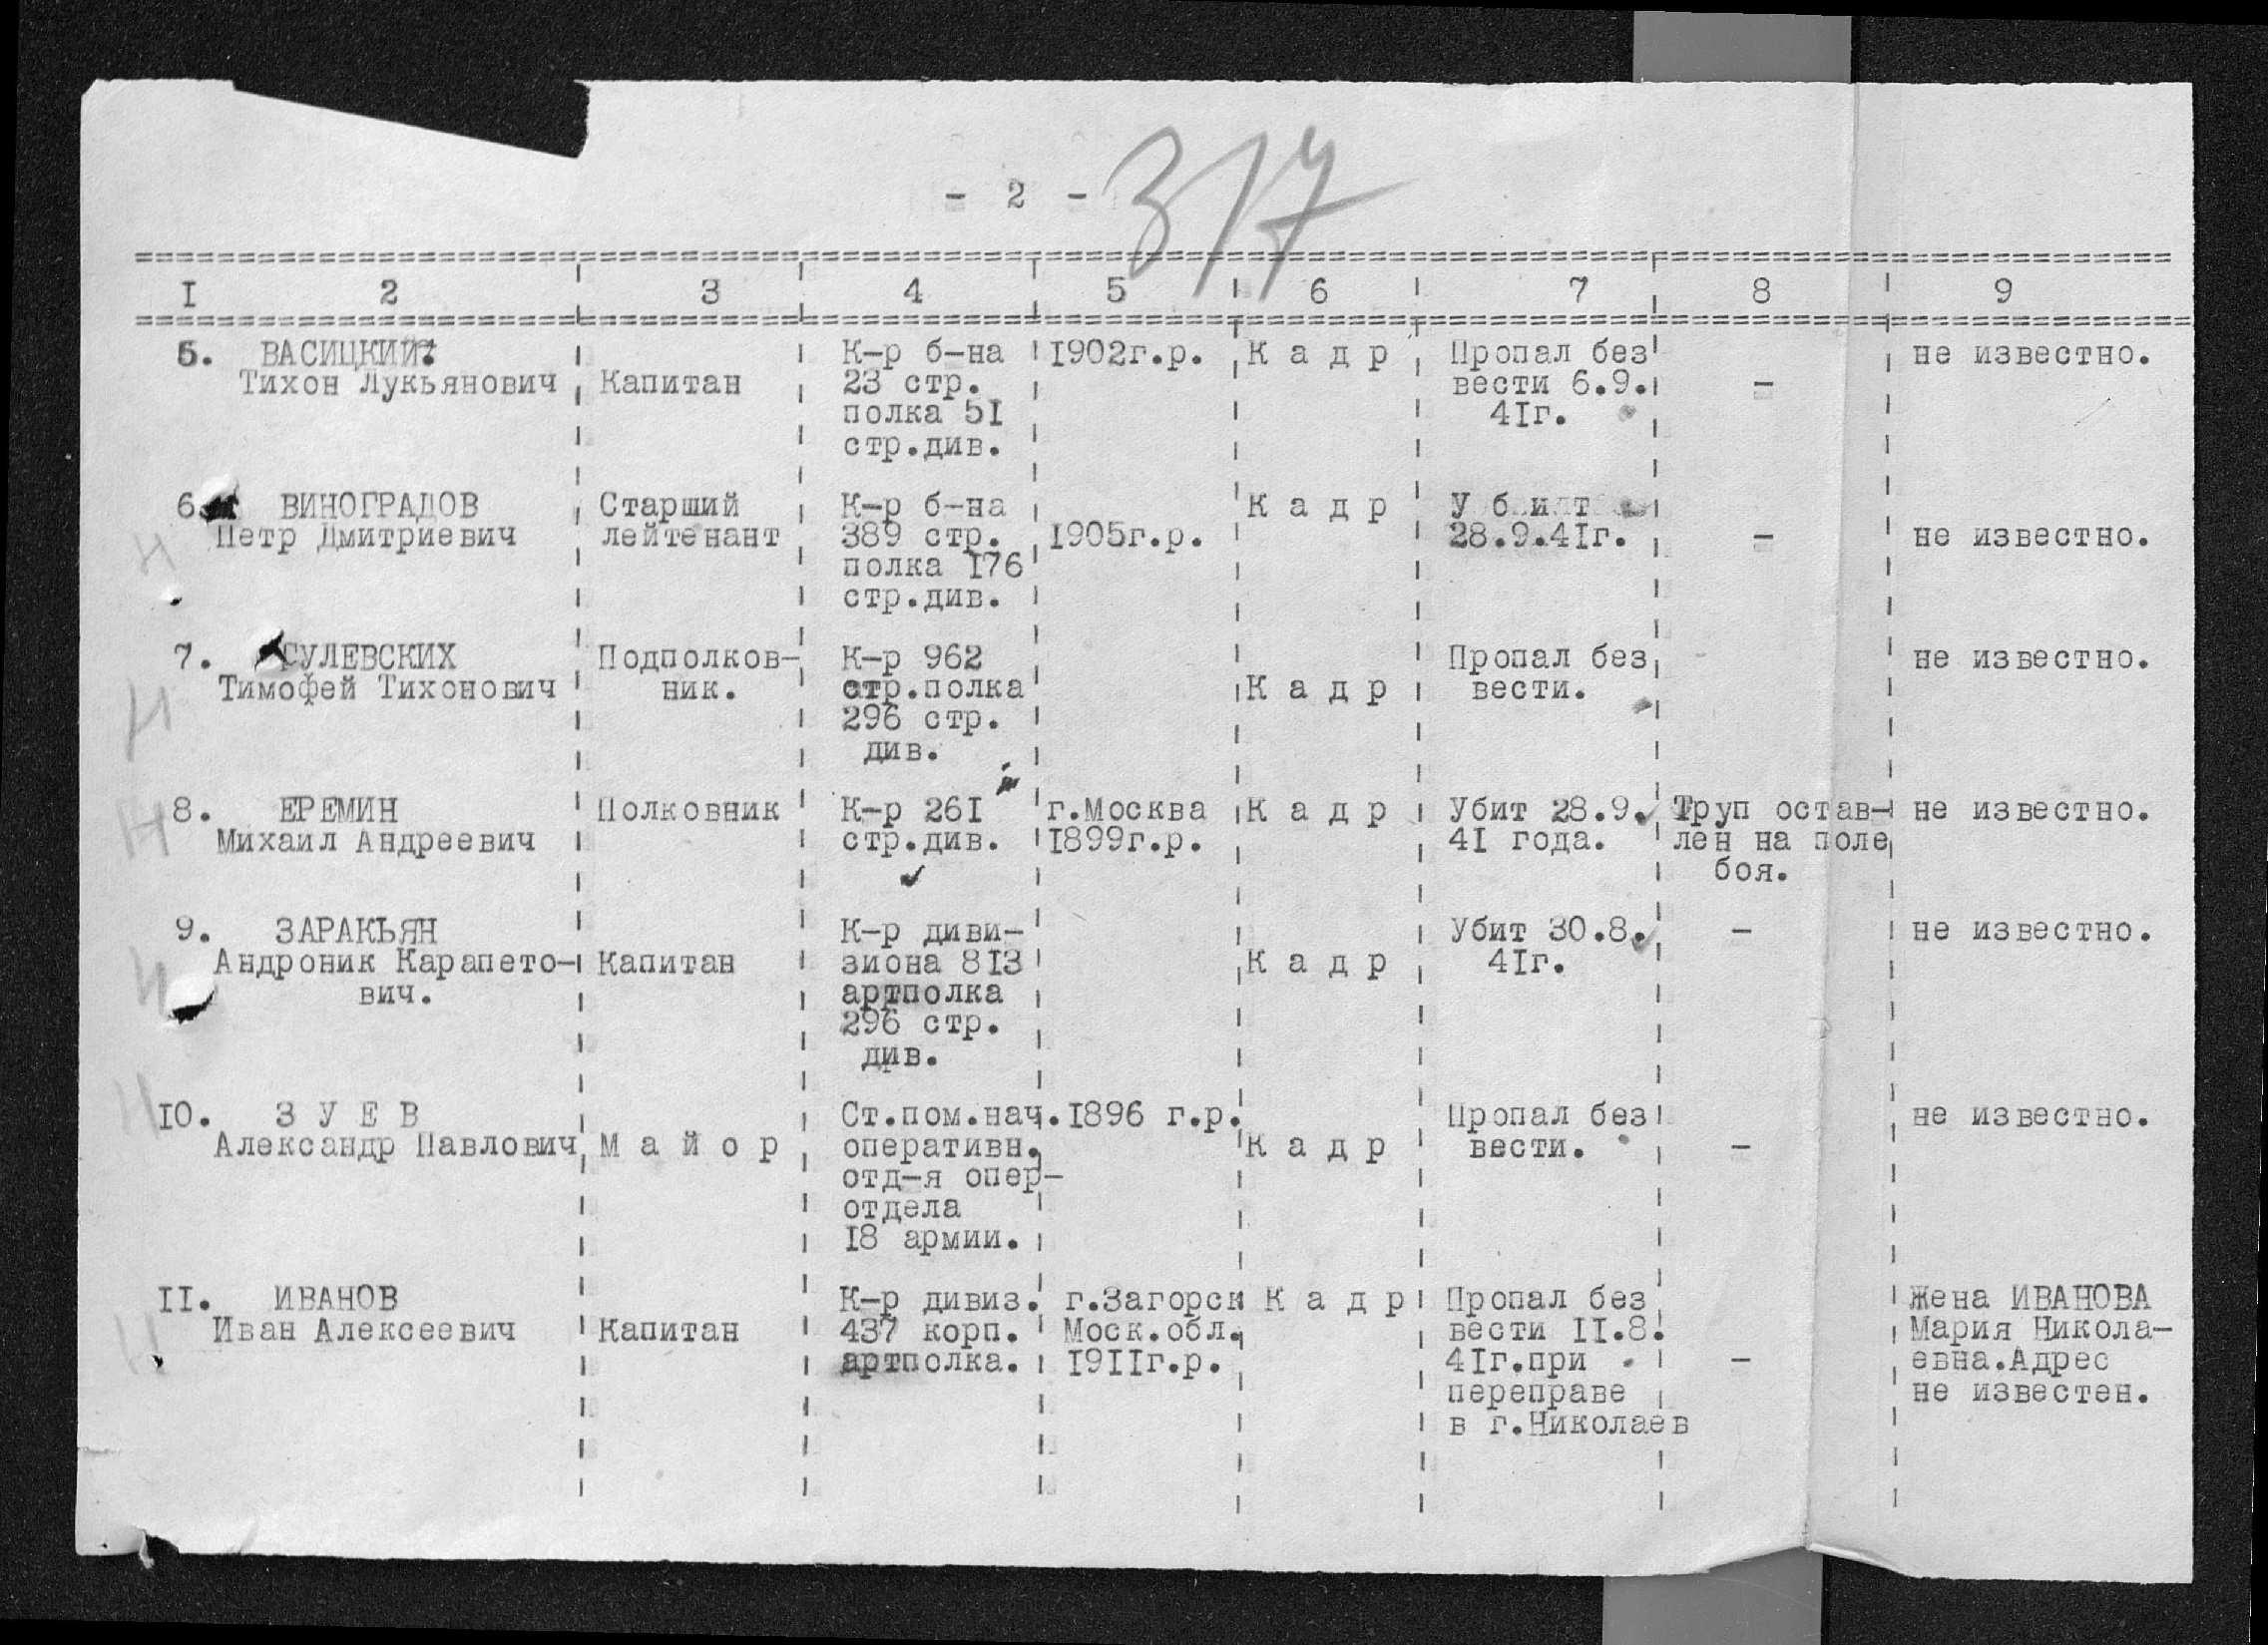 - 2 -
317
I 2 3 4 5 6 7 8 9
5. ВАСИЦКИЙ. К-р б-на 1902г.р. К а д р Пропал без не известно.
Тихон Лукьянович Капитан 23 стр. вести 6.9. -
полка 5I 4Iг.
стр.див.
6. ВИНОГРАДОВ Старший К-р б-на К а д р У б и т
Петр Дмитриевич лейтенант 389 стр. 1905г.р. 28.9.4Iг. - не известно.
полка I76
стр.див.
7. ГУЛЕВСКИХ Подполков- К-р 962 Пропал без не известно.
Тимофей Тихонович ник. стр.полка К а д р вести.
296 стр.
див.
8. ЕРЕМИН Полковник К-р 26I г.Москва К а д р Убит 28.9. Труп остав- не известно.
Михаил Андреевич стр.див. I899г.р. 4I года. лен на поле
боя.
9. ЗАРАКЬЯН К-р диви- Убит 30.8. - не известно.
Андроник Карапето- Капитан зиона 8I3 К а д р 4Iг.
вич. артполка
296 стр.
див.
IO. З У Е В Ст.пом.нач. I896 г.р. Пропал без не известно.
Александр Павлович М а й о р оперативн. К а д р вести. -
отд-я опер-
отдела
I8 армии.
II. ИВАНОВ К-р дивиз. г.Загорск К а д р Пропал без Жена ИВАНОВА
Иван Алексеевич Капитан 437 корп. Моск.обл. вести II.8. Мария Никола-
артполка. I9IIг.р. 4Iг.при - евна.Адрес
переправе не известен.
в г.Николаев